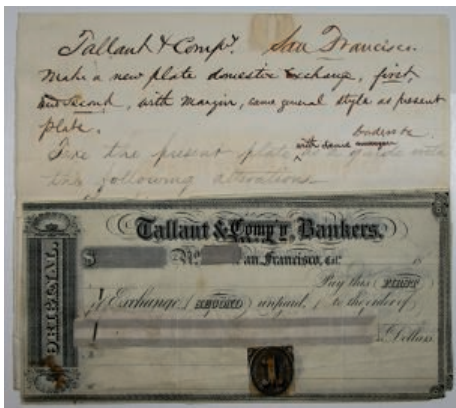 Tallant & Compy. San Francisco.
Make a new plate domestic Exchange, first
and second, with margin, same general style as present
plate.
Take the present plate as a guide with
with same borders &c
the following alterations
Tallant & Comp'y, Bankers,
$ No. San Francisco, Cal. 18
Pay this FIRST
of Exchange (SECOND unpaid,) to the order of
Dollars
ORIGINAL
1